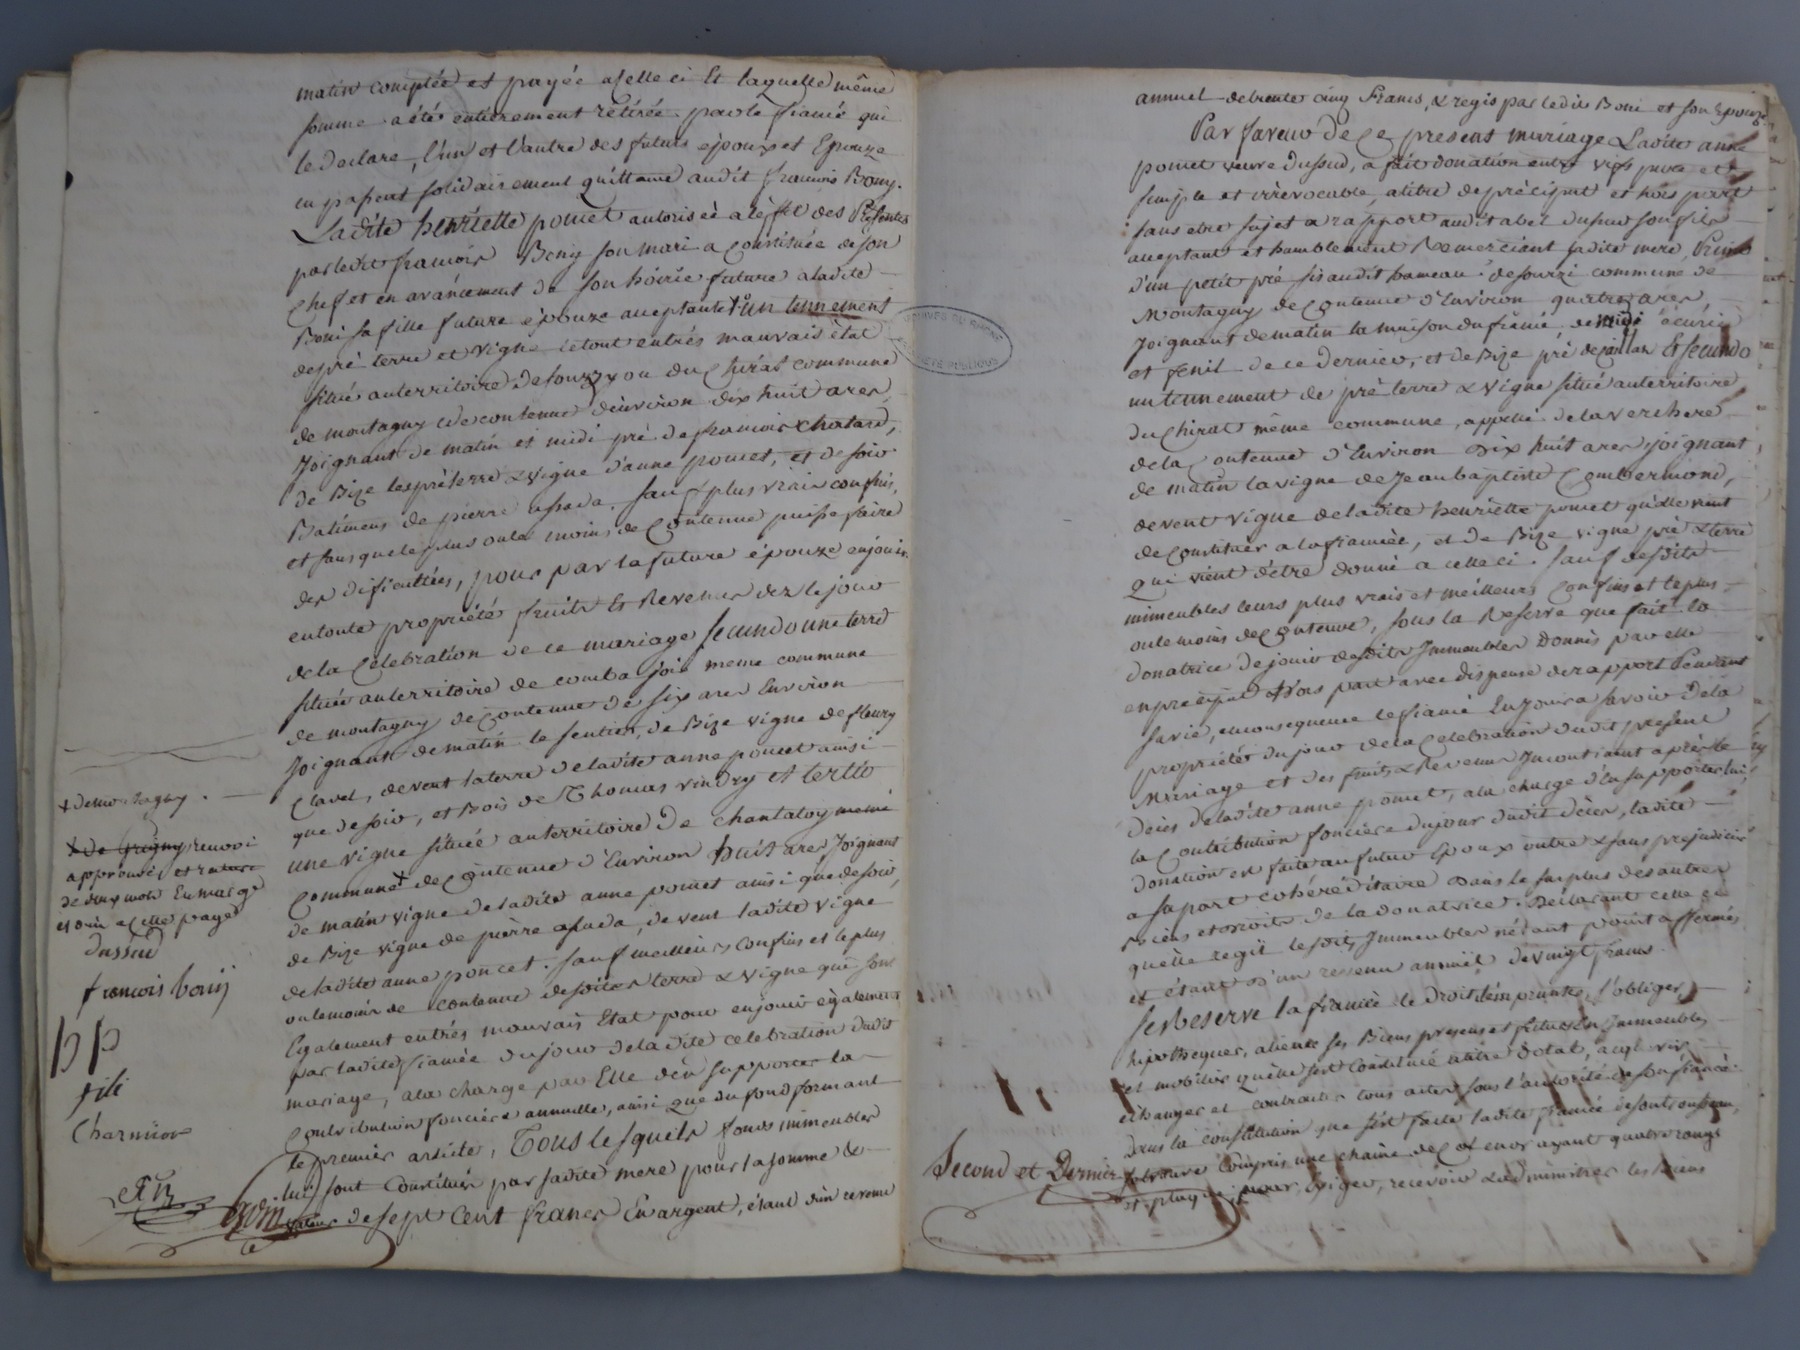 matin comptée et payée a celle ci Et laquelle même
somme a été entièrement retirée par le fiancé qui
le declare, l'un et l'autre des futurs époux et Epouze
en passent solidairement quittance audit francois Bony.
Ladite henriette poncet autorisée a l'effet des Présentes
par ledit francois Bony son mari a Constituée de son
Chef et en avancement de son hoirie future a ladite
Boni sa fille future épouze acceptante 1° un tennement
de pré terre et vigne le tout en très mauvais état
situé au territoire de sourzy ou du Chirat commune
de montagny de contenue d'environ dix huit ares,
Joignant de matin et midi pré de francois Chatard,
de Bize les pré terre & vigne d'anne poncet, et de soir
Batimens de pierre assada, sauf plus vrais confins,
et sans que le plus ou le moins de Contenue puisse faire
des dificultées, pour par la future épouze en jouir
en toute propriété fruits et Revenus dez le jour
de la Celebration de ce mariage secundo une terre
située au territoire de comba join meme commune
de montagny de Contenue de six ares Environ
Joignant de matin le sentier, de Bize vigne de fleury
Clavel, de vent la terre de ladite anne poncet ainsi
que de soir, et Bois de Thomas vindry et tertio
une vigne située au territoire de Chantaloy meme
Commune + de Contenue d'Environ huit ares Joignant
de matin vigne de ladite anne poncet ainsi que de soir,
de Bize vigne de pierre assada, de vent ladite vigne
de ladite anne poncet. sauf meilleurs confins et le plus
ou le moins de contenue desdites terre & vigne qui sont
Egalement en très mauvais Etat pour en jouir également
par ladite fiancée du jour de ladite celebration dudit
mariage, a la charge par Elle d'en supporter la
Contribution foncière annuelle, ainsi que du fond formant
le premier article, Tous lesquels fonds immeubles
lui sont Constitués par sadite mere pour la somme &
valeur de sept Cent francs En argent, étant d'un revenu
+ de montagny.
+ de Grigny renvoi
approuvé, et rature
de deux mots En marge
dussud
francois bony
pp
fili
Charmion
annuel de trente cinq Francs, & regis par ledit Boni et son Epouze
Par faveur de Ce present mariage Ladite anne
poncet veuve dussud, a fait donation entre vifs pure et
simple et irrévocable, a titre de préciput et hors part
sans etre sujet a rapport audit abel dussud son fils
acceptant et humblement Remerciant sadite mere, Primo
d'un petit pré sis audit hameau de sourzi commune de
Montagny de Contenue d'Environ quatre ares,
Joignant de matin la maison du fiancé, de midi écurie
et fenil de ce dernier, et de Bize pré de Caillat Et secundo
un tennement de pré terre & vigne situé au territoire
du Chirat même commune, appellé de la verchere
de la Contenue d'Environ Dix huit ares joignant
de matin la vigne de Jean baptiste Combermond,
de vent vigne de ladite henriette poncet qu'elle vient
de Constituer a la fiancée, et de Bize vigne pré & terre
Qui vient d'être donné a celle ci. sauf desdits
immeubles leurs plus vrais et meilleurs Confins et le plus
ou le moins de Contenue, sous la Reserve que fait la
donatrice de jouir desdits Immeubles Donnés par elle
en préciput & hors part avec dispense de rapport Pendant
sa vie, en consequence le fiancé En jouira savoir de la
propriété du jour de la Celebration dudit present
Mariage et des fruits & Revenus Incontinant après le
deces de ladite anne poncet, a la charge d'en supporter lui
la Contribution foncière du jour dudit décès, ladite
donation est faite au futur Epoux outre & sans prejudicier
a sa part cohéréditaire dans le surplus des autres
biens et droits de la donatrice. Déclarant celle ci
qu'elle regit lesdits Immeubles n'étant point affermés
et étant d'un revenu annuel de vingt francs.
se Reserve la fiancée le Droit d'emprunter, s'obliger,
hipothequer, aliener ses Biens presens et futurs En Immeubles
et mobilier qu'elle s'est Constitué a titre Dotal,
échanger et contracter tous actes sous l'autorité de son fiancé.
dans la Constitution que s'est faite ladite fiancée de son trousseau,
compris une chaine de Col en or ayant quatre rangs
exiger, recevoir & administrer les biens
Second et Dernier
ARCHIVES DU RHÔNE